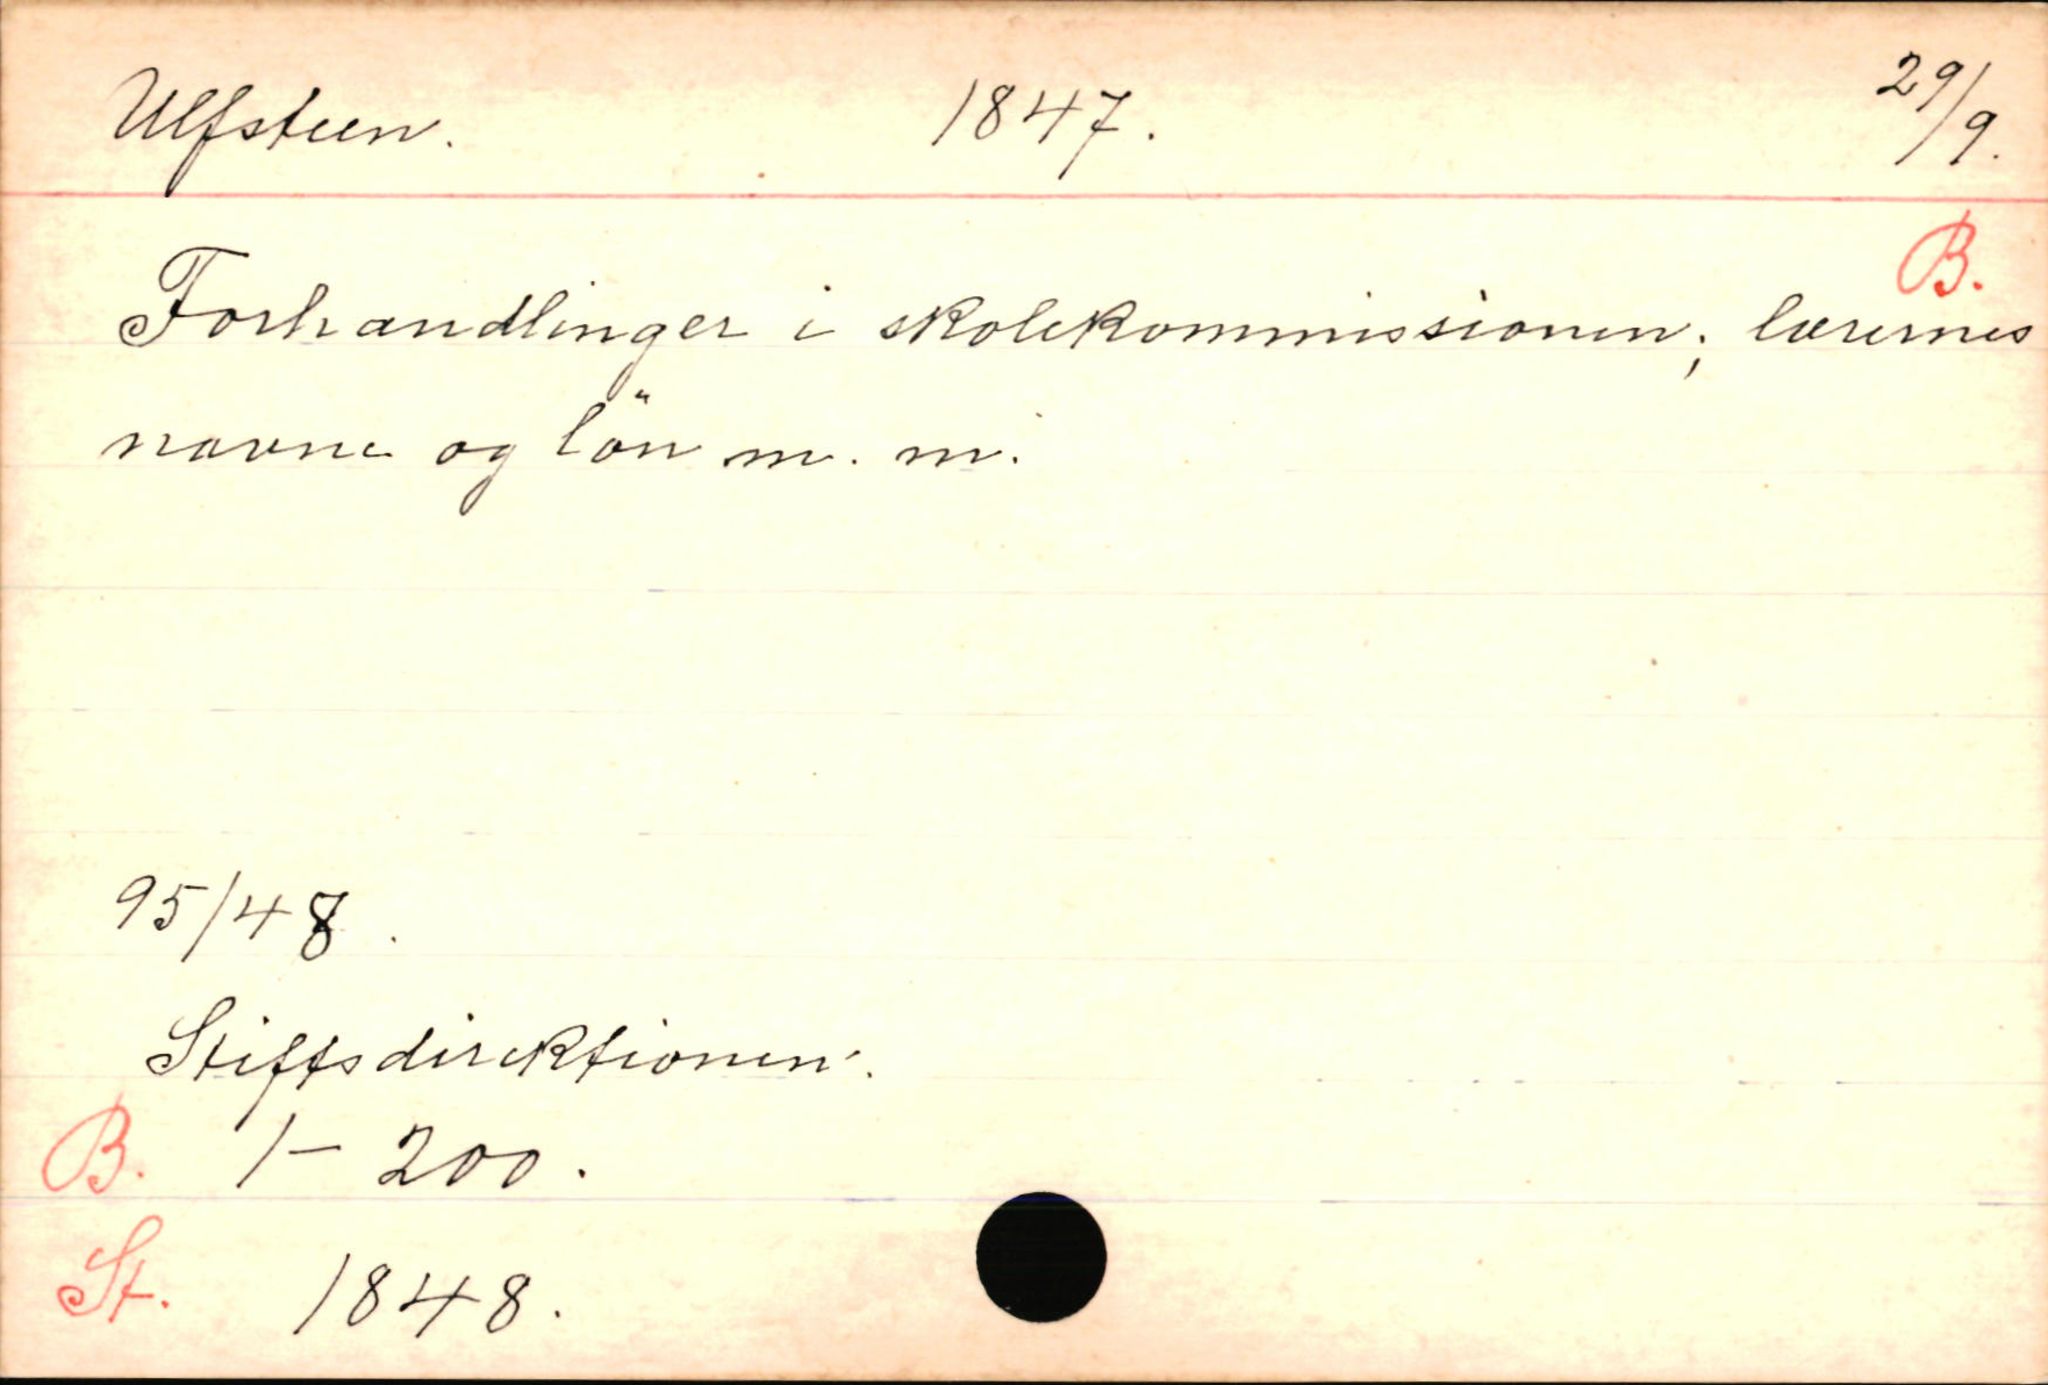 Ulfsteen. 1847. 29/9.
B.
Forhandlinger i skolekommissionen; lærernes
navne og lön m. m.
95/48.
Stiftsdirektionen.
B. 1-200.
St. 1848.